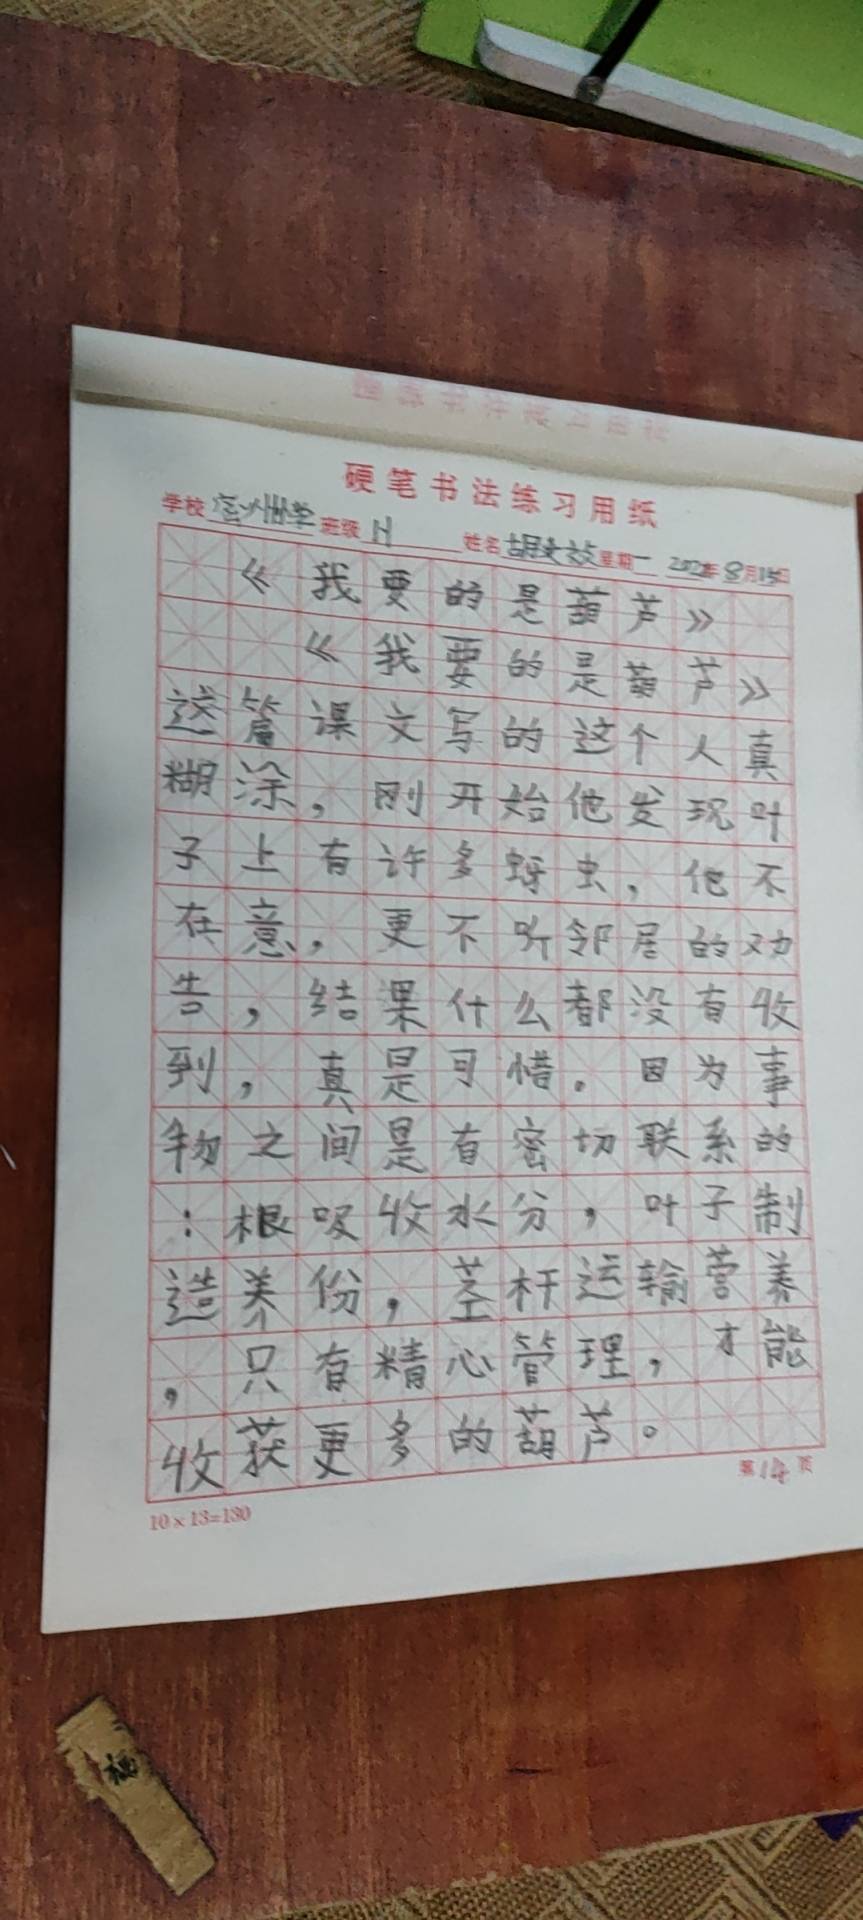 硬笔书法练习用纸
学校 宿州小学 班级 11 姓名 胡 星期一 202 年8月15日
《我要的是葫芦》
《我要的是葫芦》
这篇课文写的这个人真
糊涂，刚开始他发现叶
子上有许多蚜虫，他不
在意，更不听邻居的劝
告，结果什么都没有收
到，真是可惜。因为事
物之间是有密切联系的
：根吸收水分，叶子制
造养份，茎杆运输营养
，只有精心管理，才能
收获更多的葫芦。
第14页
10×13=130